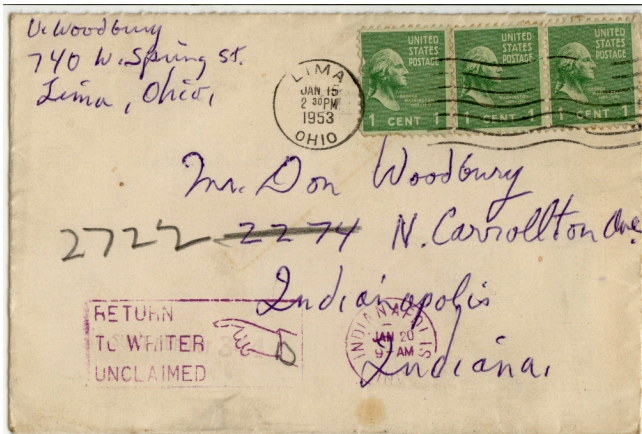 V. Woodbury
740 W. Spring St.
Lima, Ohio,
LIMA
JAN 15
2 30 PM
1953
OHIO
UNITED STATES POSTAGE
1 CENT 1
UNITED STATES POSTAGE
1 CENT 1
UNITED STATES POSTAGE
1 CENT 1
Mr. Don Woodbury
2722 2274 N. Carrollton Ave.
Indianapolis
Indiana.
RETURN
TO WRITER
UNCLAIMED
INDIANAPOLIS
JAN 20
9 AM